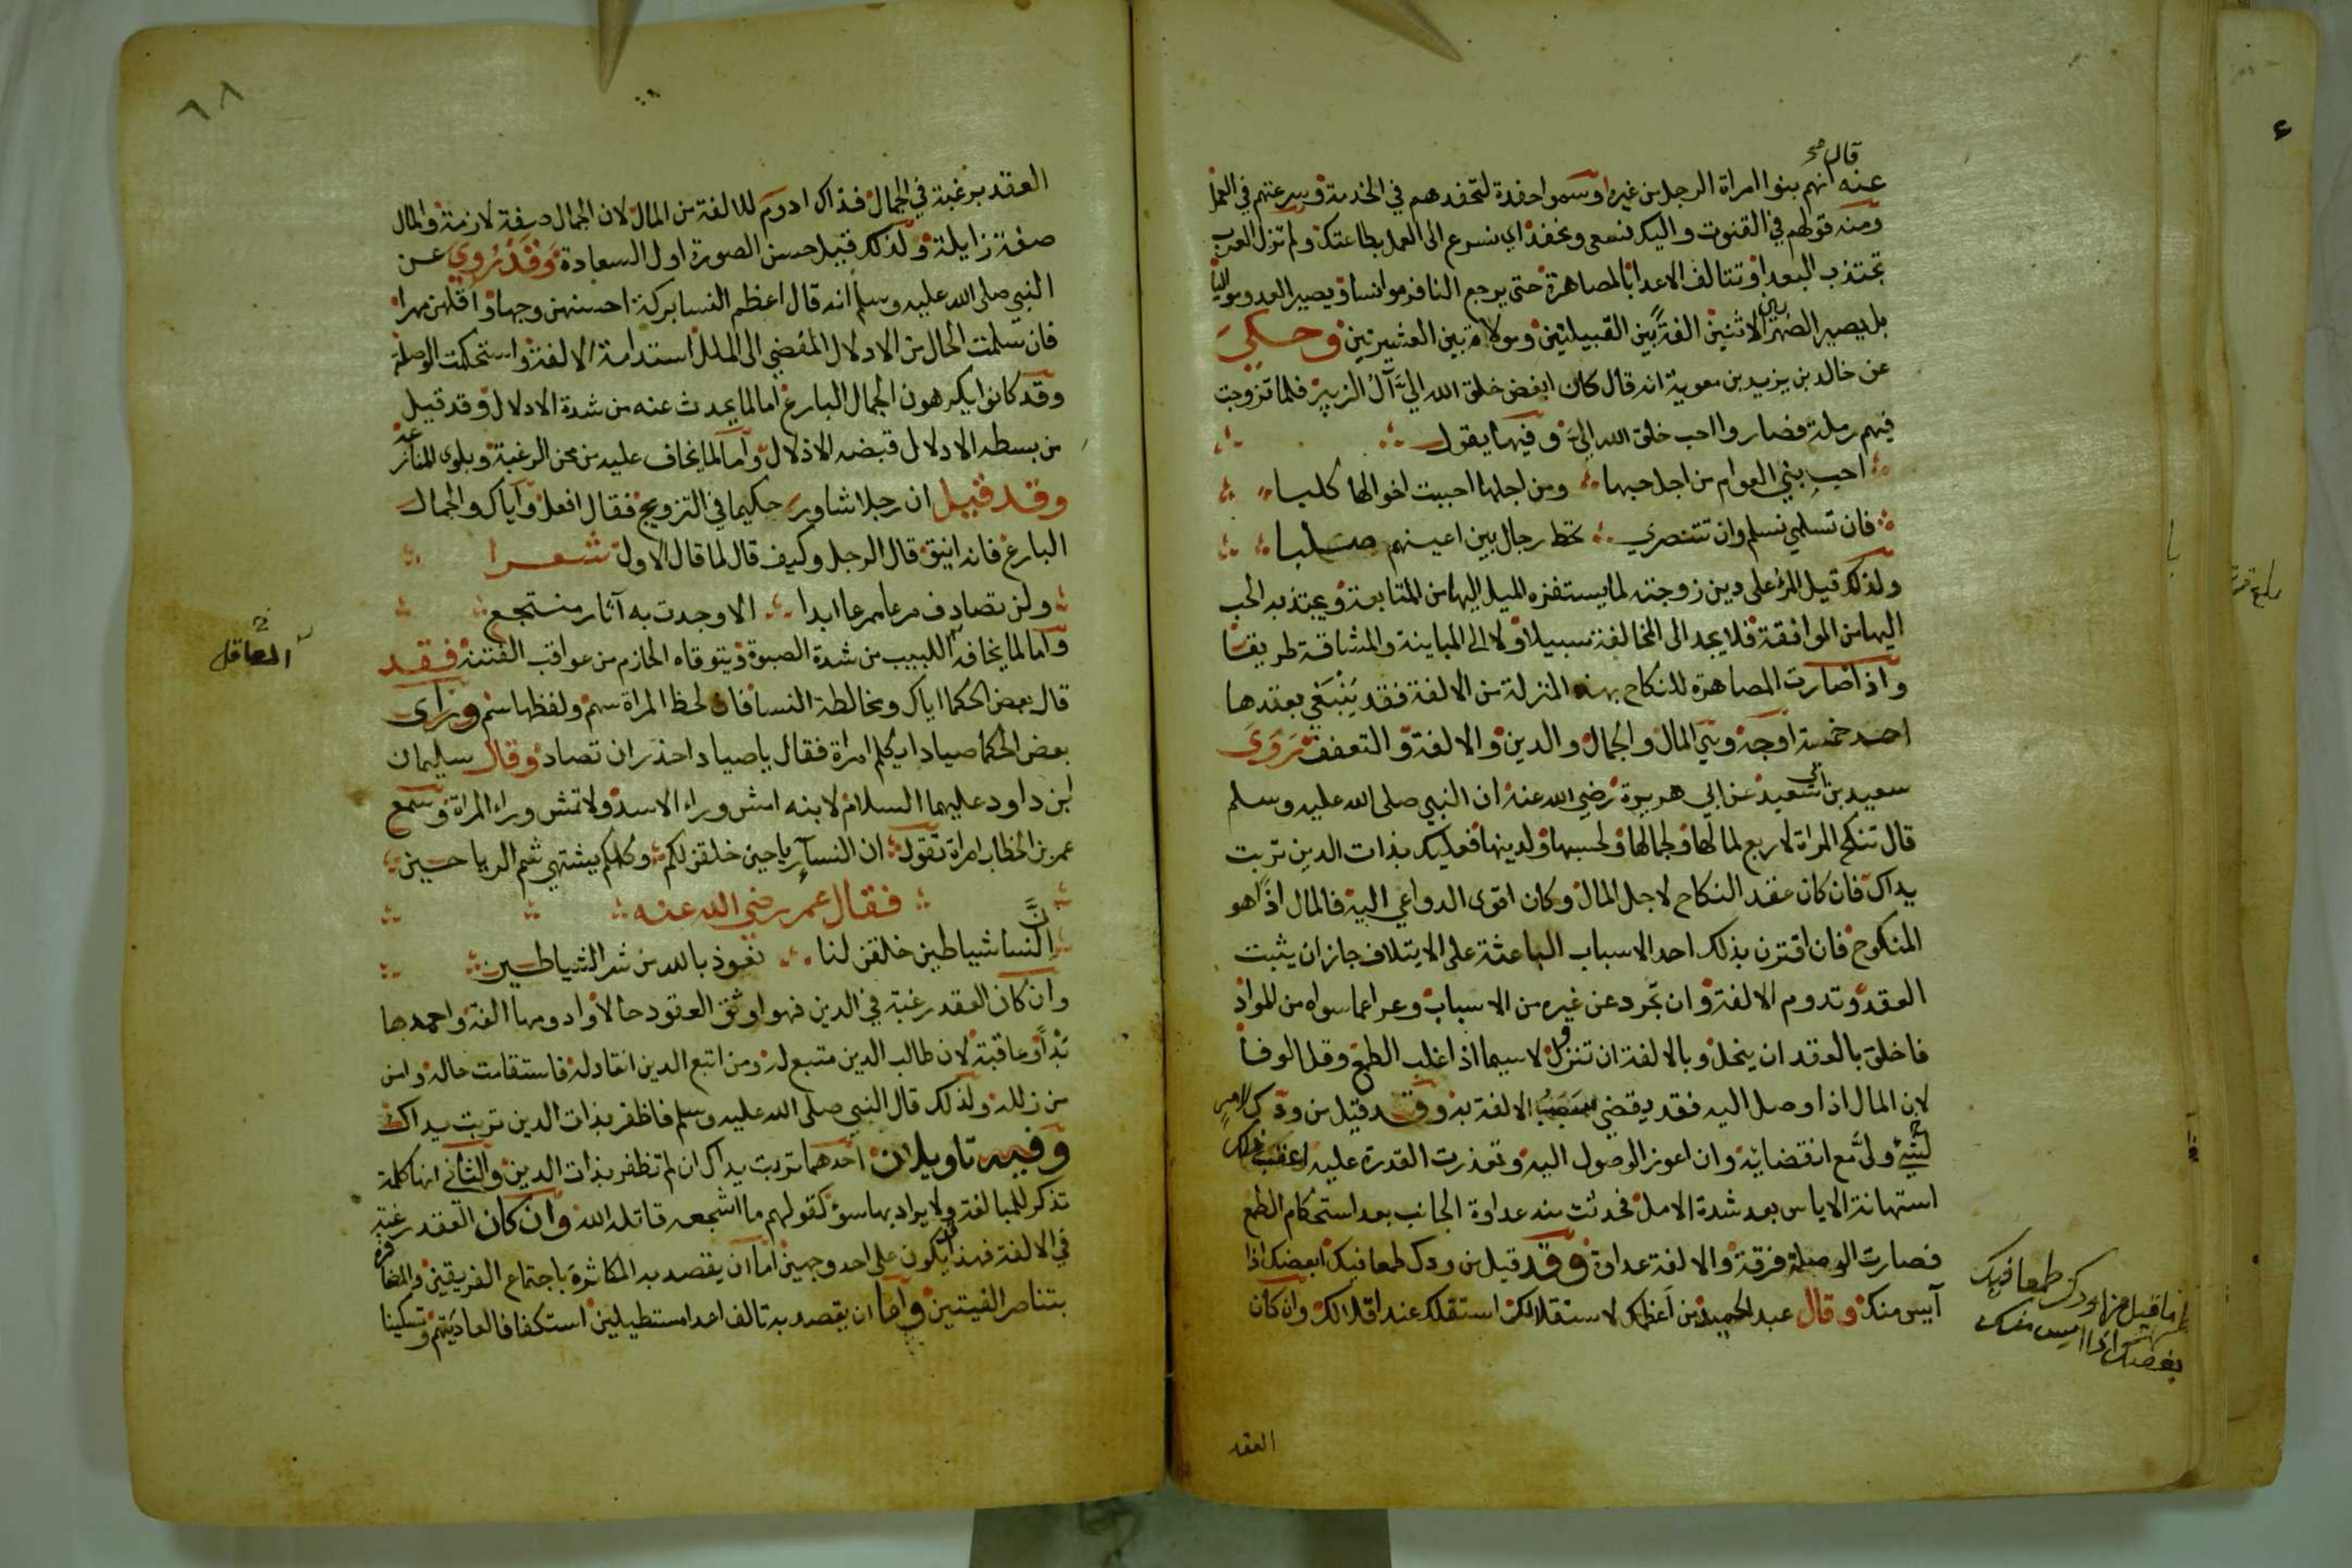 قال صح
عنه انهم بنوا امراة الرجل من غيره وسموا حفدة لتحفدهم في الخدمة وسرعتهم في العمل
ومنه قولهم في القنوت واليك نسعى ونحفد اي نسرع الى العمل بطاعتك ولم تزل العرب
تجتذب البعدا وتتالف الاعدا بالمصاهرة حتى يرجع النافر موانسا ويصير العدو مواليا
بل يصير الصهر بين الاثنين الفة بين القبيلتين وموالاة بين العشيرتين وحكي
عن خالد بن يزيد بن معوية انه قال كان ابغض خلق الله الي آل الزبير فلما تزوجت
فيهم رملة فصاروا احب خلق الله الي وفيها يقول
احب بني العوام من اجل حبها ومن اجلها احببت اخوالها كلبا
فان تسلمي نسلم وان تتنصري تخط رجال بين اعينهم صلبا
ولذلك قيل المرء على دين زوجته لما يستفزه الميل اليها من المتابعة ويجتذبه الحب
اليها من الموافقة فلا يجد الى المخالفة سبيلا ولا الى المباينة والمشاقة طريقا
واذا صارت المصاهرة للنكاح بهذه المنزلة من الالفة فقد ينبغي بعقدها
احد خمسة اوجه وهي المال والجمال والدين والالفة والتعفف روى
سعيد بن ابي سعيد عن ابي هريرة رضي الله عنه ان النبي صلى الله عليه وسلم
قال تنكح المراة لاربع لمالها ولجمالها ولحسبها ولدينها فعليك بذات الدين تربت
يداك فان كان عقد النكاح لاجل المال وكان اقوى الدواعي اليه فالمال اذا هو
المنكوح فان اقترن بذلك احد الاسباب الباعثة على الايتلاف جاز ان يثبت
العقد وتدوم الالفة وان تجرد عن غيره من الاسباب وعرا عما سواه من المواد
فاخلق بالعقد ان ينحل وبالالفة ان تزول لاسيما اذا غلب الطمع وقل الوفا
لان المال اذا وصل اليه فقد يقضي سبب الالفة به وقد قيل من ودك لامر
ولى مع انقضائه وان اعوز الوصول اليه وتعذرت القدرة عليه اعقب ذلك
استهانة الاياس بعد شدة الامل فحدثت منه عداوة الجانب بعد استحكام الطمع
فصارت الوصلة فرقة والالفة عداوة وقد قيل من ودك طمعا فيك ابغضك اذا
آيس منك وقال عبد الحميد من اعظمك لاستقلالك استقلك عند اقلالك وان كان
العقد
ما قيل من ودك طمعا فيك
بغضك اذا ايس منك
٦٨
العقد رغبة في الجمال فذاك ادوم للالفة من المال لان الجمال صفة لازمة والمال
صفة زايلة ولذلك قيل حسن الصورة اول السعادة وقد روي عن
النبي صلى الله عليه وسلم انه قال اعظم النسا بركة احسنهن وجها واقلهن مهرا
فان سلمت الحال من الادلال المفضي الى الملل استدامة الالفة واستحكمت الوصلة
وقد كانوا يكرهون الجمال البارع اما لما يحدث عنه من شدة الادلال وقد قيل
من بسطه الادلال قبضه الاذلال واما لما يخاف عليه من محن الرغبة وبلوى المنازعة
وقد قيل ان رجلا شاور حكيما في التزويج فقال افعل واياك والجمال
البارع فانه انيق قال الرجل وكيف قال لما قال الاول شعرا
ولن تصادف مرعا ممرعا ابدا الا وجدت به آثار منتجع
واما لما يخافه اللبيب من شدة الصبوة ويتوقاه الحازم من عواقب الفتنة فقد
العاقل
قال بعض الحكما اياك ومخالطة النسا فان لحظ المراة سهم ولفظها سم وراى
بعض الحكما صيادا يكلم امراة فقال يا صياد احذر ان تصاد وقال سليمان
ابن داود عليهما السلام لابنه امش وراء الاسد ولا تمش وراء المراة وسمع
عمر بن الخطاب امراة تقول ان النساء رياحين خلقن لكم وكلكم يشتهي شم الرياحين
فقال عمر رضي الله عنه
ان النسا شياطين خلقن لنا نعوذ بالله من شر الشياطين
وان كان العقد رغبة في الدين فهو اوثق العقود حالا وادومها الفة واحمدها
بدا وعاقبة لان طالب الدين متبع له ومن اتبع الدين انقاد له فاستقامت حاله وامن
من زلله ولذلك قال النبي صلى الله عليه وسلم فاظفر بذات الدين تربت يداك
وفيه تاويلان احدهما تربت يداك ان لم تظفر بذات الدين والثاني انها كلمة
تذكر للمبالغة ولا يراد بها سوء كقولهم ما اشجعه قاتله الله وان كان العقد رغبة
في الالفة فهذا يكون على احد وجهين اما ان يقصد به المكاثرة باجتماع الفريقين والمضافرة
بتناصر الفيتين واما ان يقصد به تالف اعدا مستطيلين استكفافا لعاديتهم وتسكينا